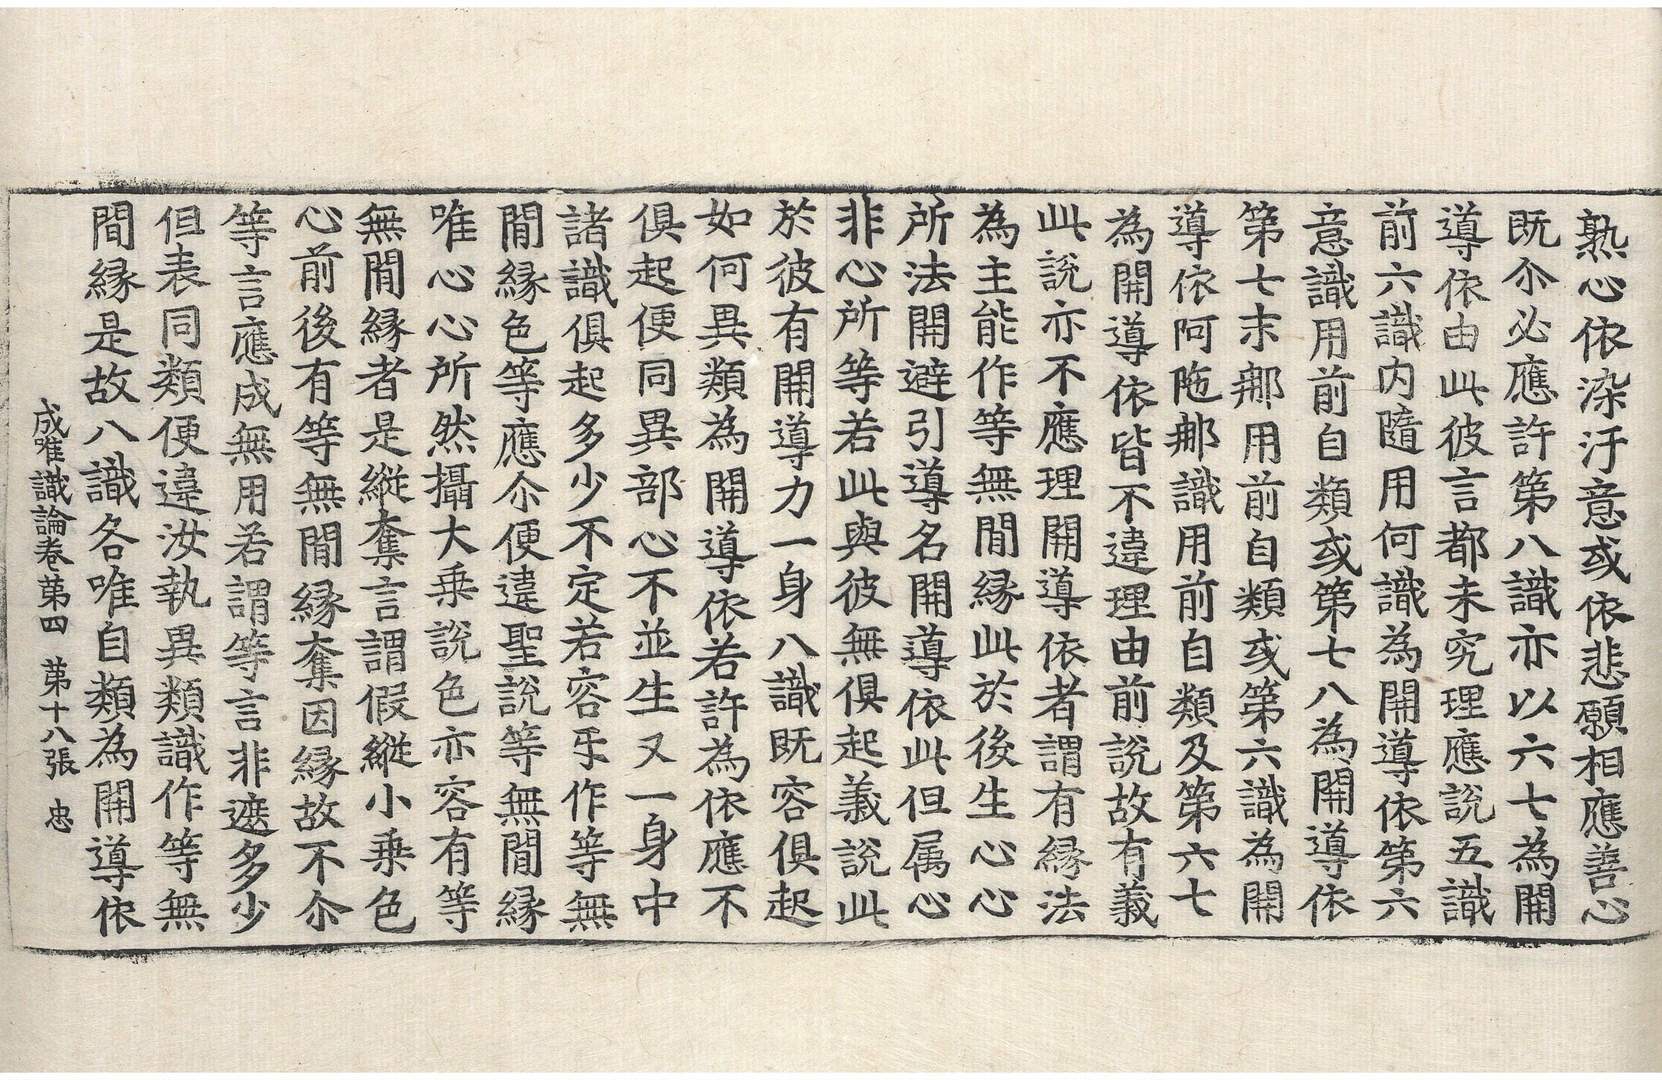 熟心依染汙意或依悲願相應善心
既尒必應許第八識亦以六七為開
導依由此彼言都未究理應說五識
前六識内隨用何識為開導依第六
意識用前自類或第七八為開導依
第七末那用前自類或第六識為開
導依阿陁那識用前自類及第六七
為開導依皆不違理由前說故有義
此說亦不應理開導依者謂有緣法
為主能作等無間緣此於後生心心
所法開避引導名開導依此但属心
非心所等若此與彼無俱起義說此
於彼有開導力一身八識既容俱起
如何異類為開導依若許為依應不
俱起便同異部心不並生又一身中
諸識俱起多少不定若容㸦作等無
間緣色等應尒便違聖說等無間緣
唯心心所然攝大乗說色亦容有等
無間緣者是縱奪言謂假縱小乗色
心前後有等無間緣奪因緣故不尒
等言應成無用若謂等言非遮多少
但表同類便違汝執異類識作等無
間緣是故八識各唯自類為開導依
成唯識論卷第四 第十八張 忠